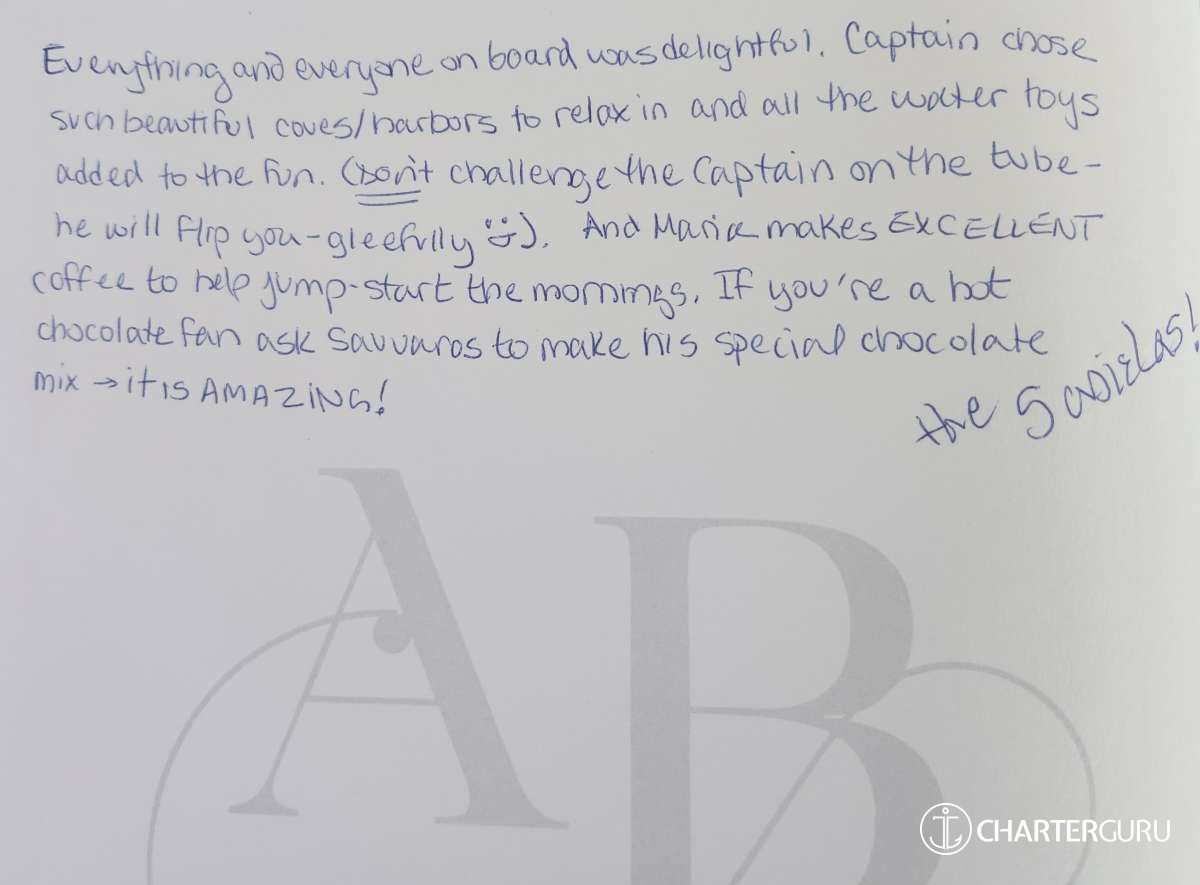 Everything and everyone on board was delightful. Captain chose
such beautiful coves/harbors to relax in and all the water toys
added to the fun. (Don't challenge the Captain on the tube-
he will flip you-gleefully :)). And Maria makes EXCELLENT
coffee to help jump-start the mornings. If you're a hot
chocolate fan ask Savvaros to make his special chocolate
mix → it is AMAZING!
the
AB
CHARTERGURU